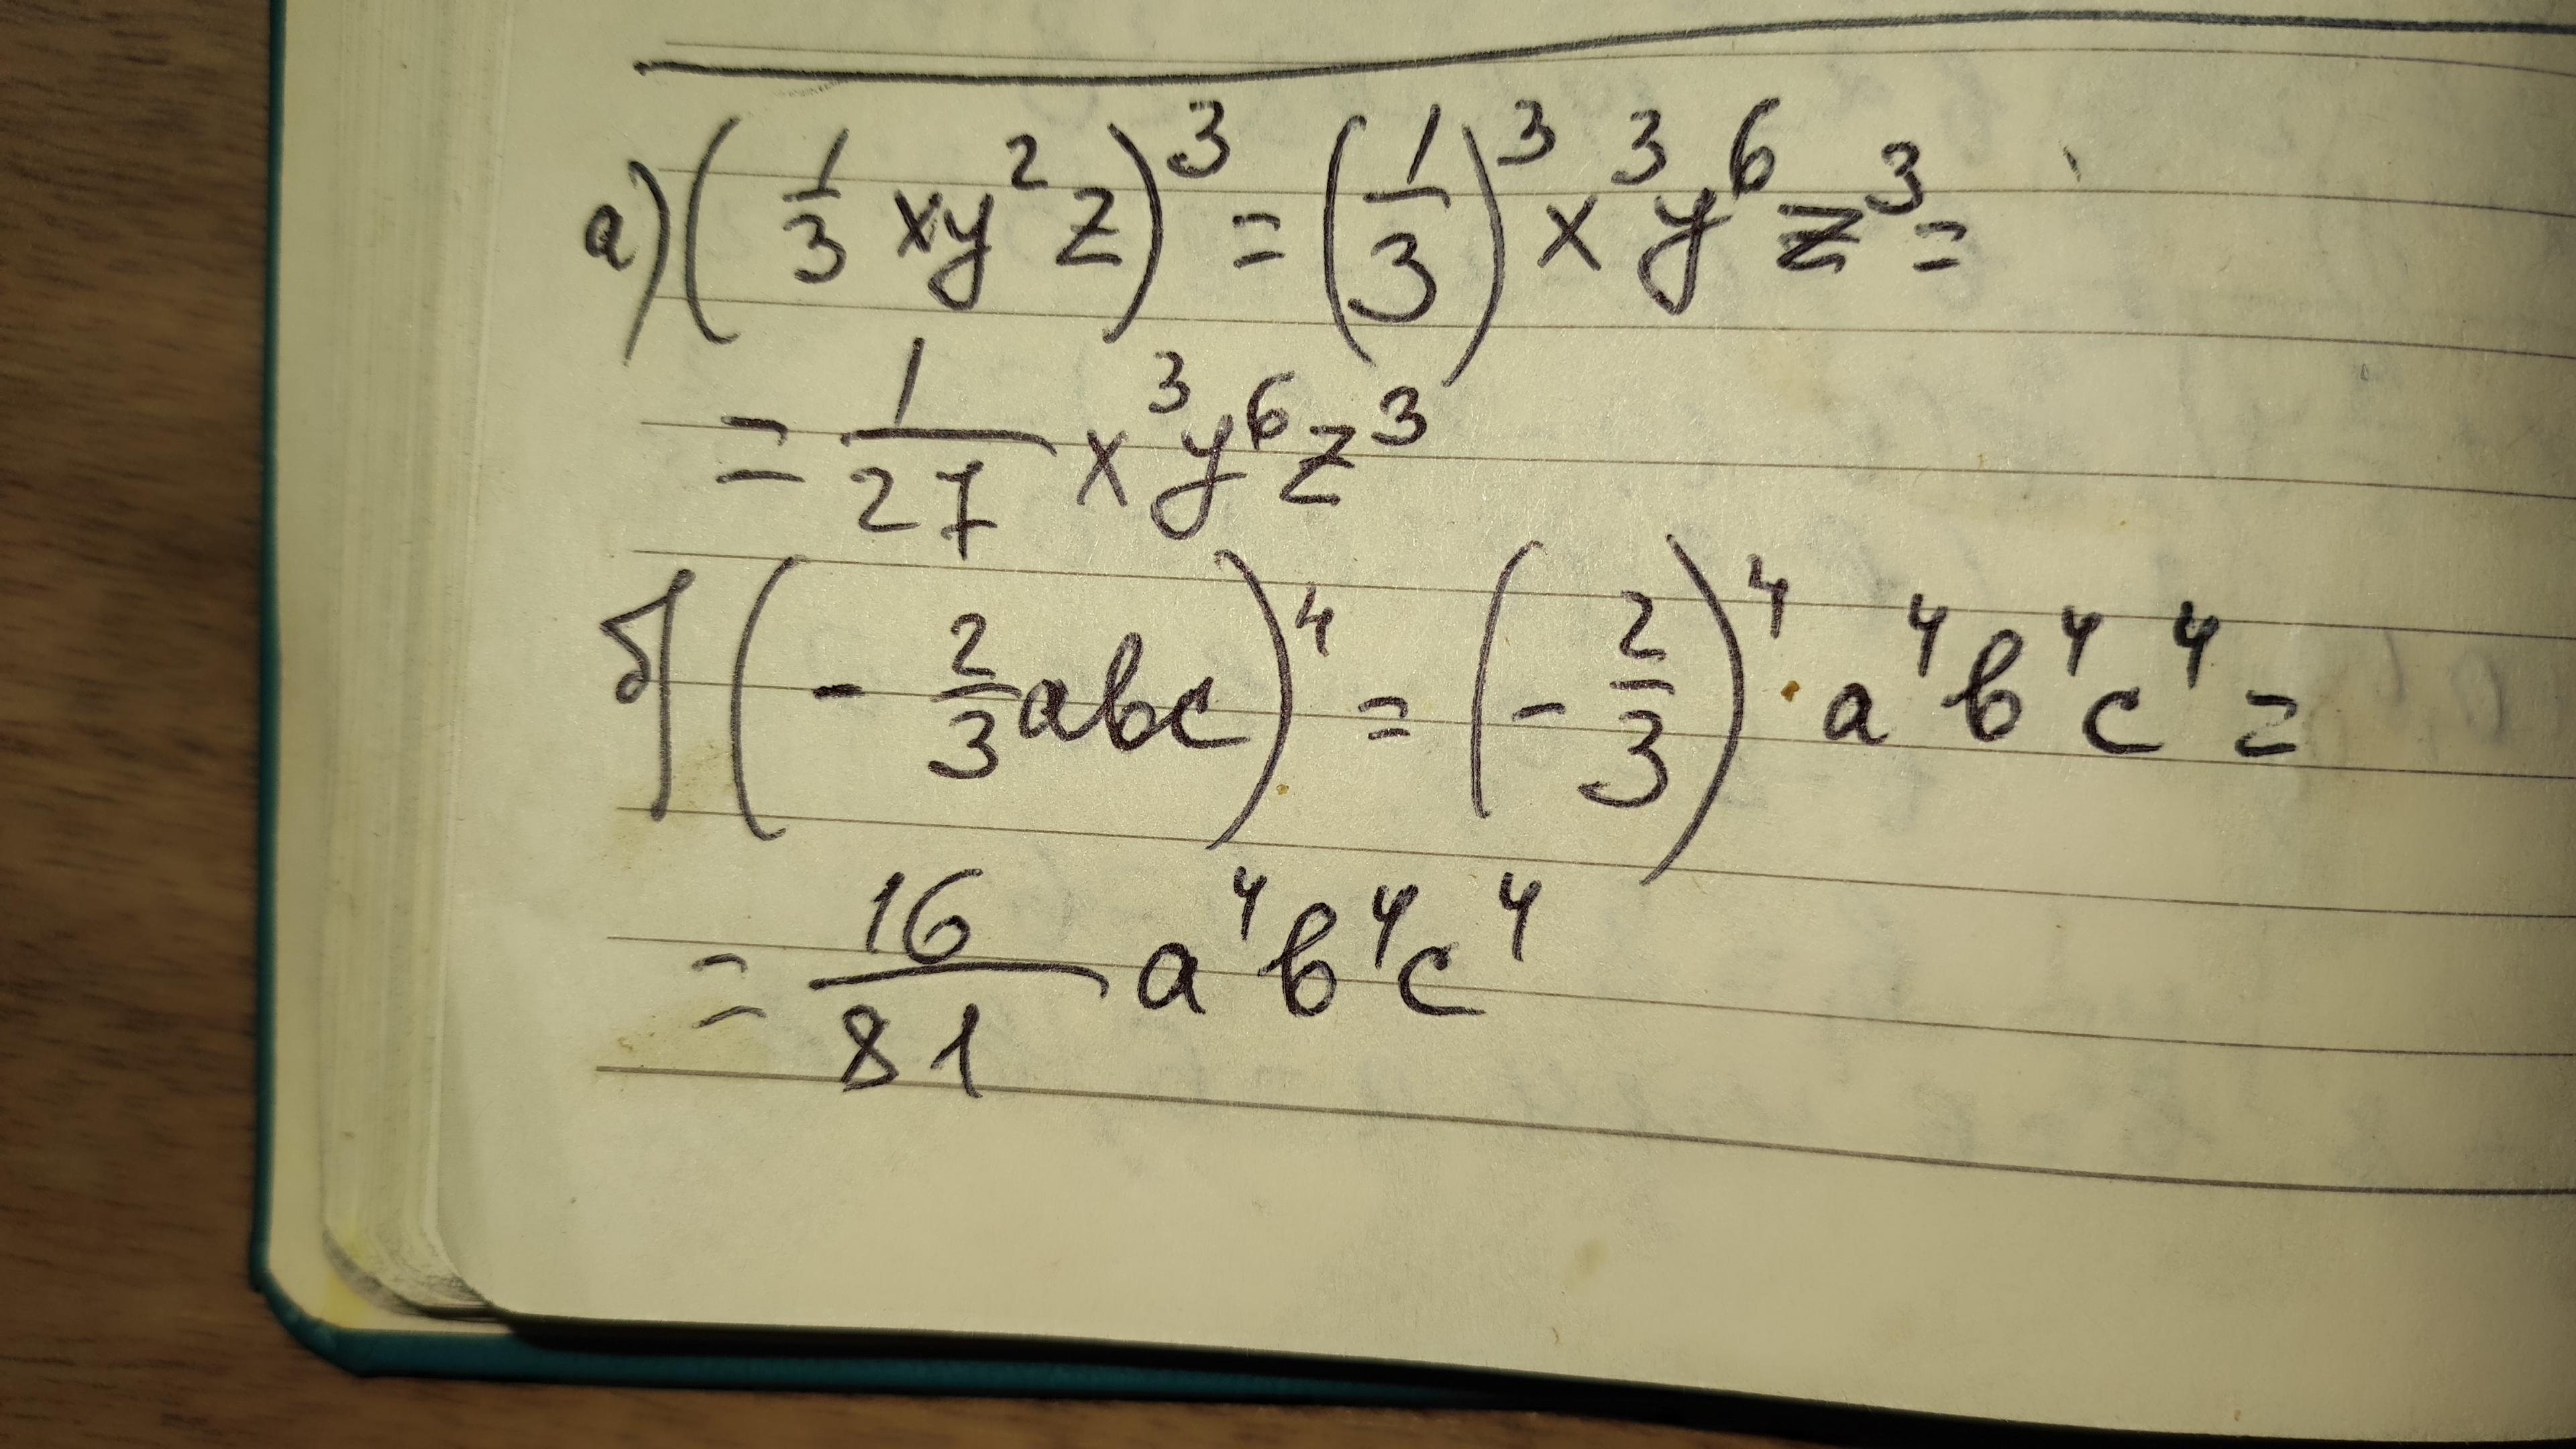 а) (1/3 xy²z)³ = (1/3)³ x³y⁶z³ =
= 1/27 x³y⁶z³
б) (- 2/3 abc)⁴ = (- 2/3)⁴ · a⁴b⁴c⁴ =
= 16/81 a⁴b⁴c⁴